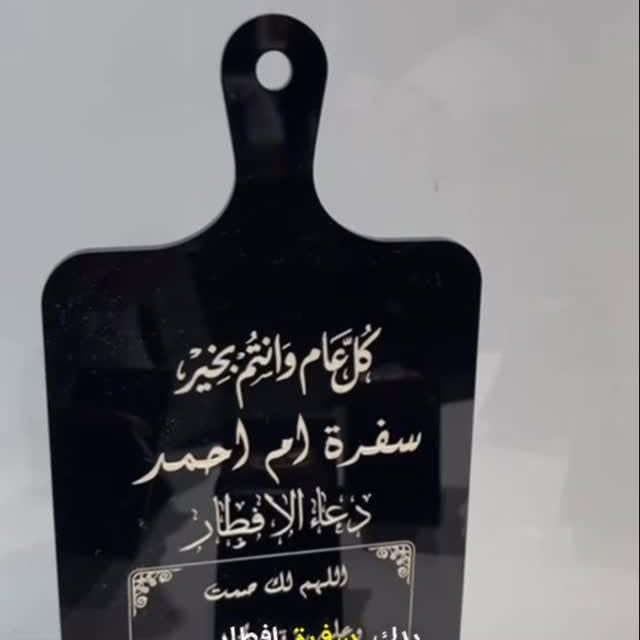 كُلُّ عَام وَانتُمْ بِخَيْر
سفرة ام احمد
دعاء الافطار
اللهم لك صمت
سفرة